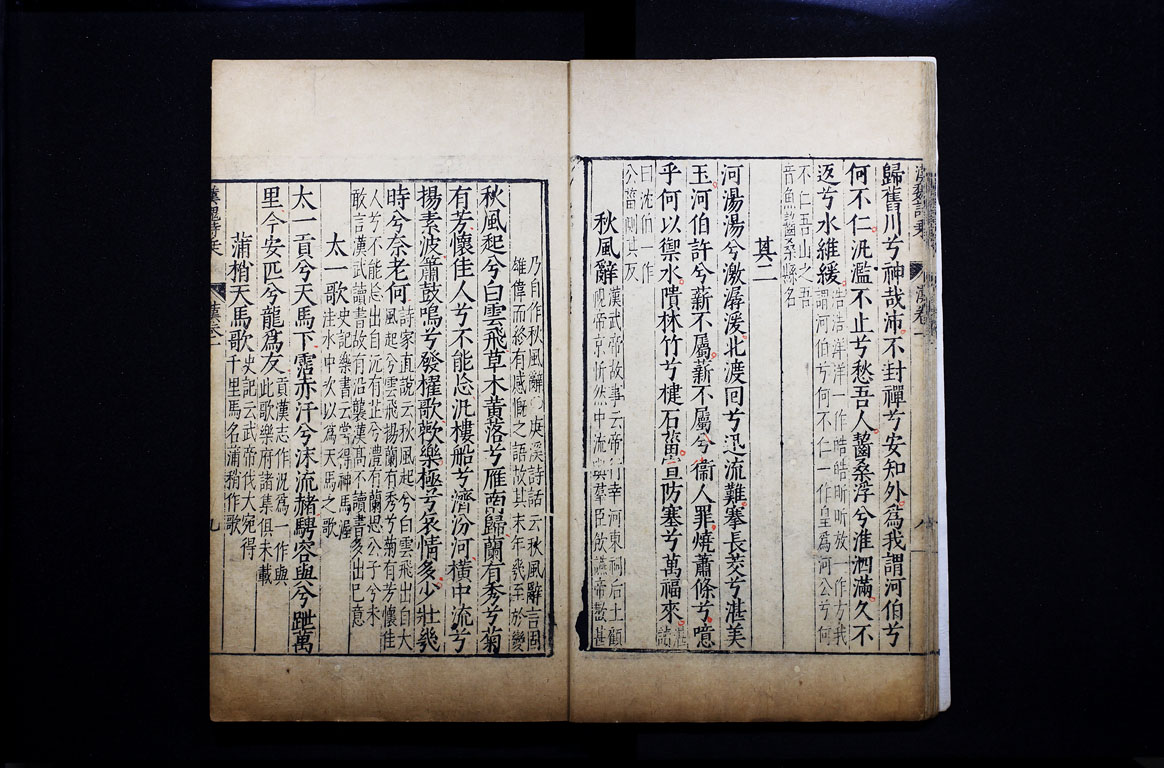 漢魏詩乗 漢卷一 八
歸舊川兮神哉沛不封禪兮安知外爲我謂河伯兮
何不仁泛濫不止兮愁吾人齧桑浮兮淮泗滿久不
返兮水維緩浩浩洋洋一作皓皓旰旰放一作方我
謂河伯兮何不仁一作皇爲河公兮何
不仁吾山之吾
音魚齧桑縣名
其二
河湯湯兮激潺湲北渡回兮迅流難搴長茭兮湛美
玉河伯許兮薪不屬薪不屬兮衞人罪燒蕭條兮噫
乎何以禦水隤林竹兮楗石菑宣防塞兮萬福來湛
讀
曰沈伯一作
公菑則其反
秋風辭漢武帝故事云帝行幸河東祠后土顧
視帝京忻然中流與羣臣飲讌帝歡甚
乃自作秋風辭〇庚溪詩話云秋風辭言固
雄偉而終有感慨之語故其末年幾至於變
秋風起兮白雲飛草木黃落兮雁南歸蘭有秀兮菊
有芳懷佳人兮不能忘泛樓船兮濟汾河橫中流兮
揚素波簫鼓鳴兮發櫂歌歡樂極兮哀情多少壯幾
時兮奈老何詩家直說云秋風起兮白雲飛出自大
風起兮雲飛揚蘭有秀兮菊有芳懷佳
人兮不能忘出自沅有芷兮澧有蘭思公子兮未
敢言漢武讀書故有沿襲漢高不讀書多出己意
太一歌史記樂書云常得神馬渥
洼水中次以爲太一之歌
太一貢兮天馬下霑赤汗兮沫流赭騁容與兮跇萬
里今安匹兮龍爲友貢漢志作況爲一作與
此歌樂府諸集俱未載
蒲梢天馬歌史記云武帝伐大宛得
千里馬名蒲梢作歌
漢魏詩乗 漢卷一 九